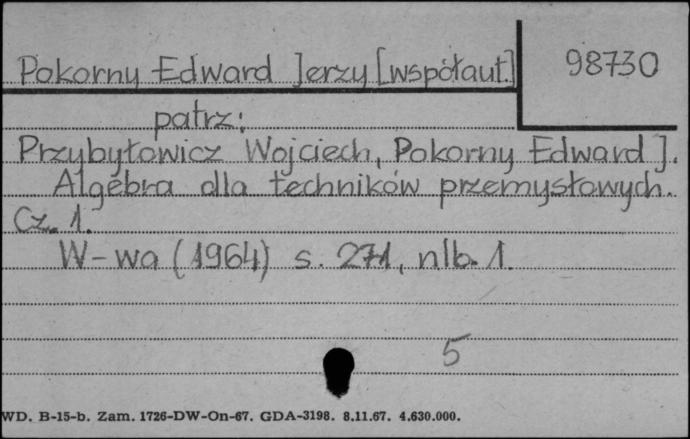 Pokorny Edward Jerzy [współaut.]
98730
patrz:
Przybyłowicz Wojciech, Pokorny Edward J.
Algebra dla techników przemysłowych.
Cz. 1.
W-wa (1964) s. 271, nlb. 1.
5
WD. B-15-b. Zam. 1726-DW-On-67. GDA-3198. 8.11.67. 4.630.000.